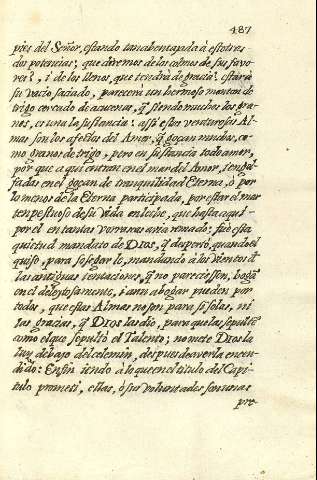 487
pies del Señor, estando tan abentajada à estotras
dos potencias; que diremos de los colmos de sus favo-
res?, i de los llenos, que tendrà de gracia? estarà
su vacio saciado, parecerà un hermoso monton de
trigo cercado de azucenas, q̃ siendo muchos los gra-
nos, es una la sustancia: assi estas venturosas Al-
mas son los afectos del Amor, q̃ gozan unidas, co-
mo granos de trigo, pero en sustancia todo amor,
por que aqui entran en el mar del Amor, i engol-
fadas en el gozan de tranquilidad Eterna, ò por
lo menos de la Eterna participada, por estar el mar
tempestuoso de su vida en leche, que hasta aqui
por el en tantas borrascas avia remado: fue esta
quietud mandato de Dios, q̃ despertò, quando el
quiso, para sosegarle, mandando à los vientos de
las antiguas tentaciones, q̃ no pareciessen, bogã
en el deleytosamente, i aun abogar pueden por
todas, que estas Almas no son para si solas, ni
las gracias, q̃ Dios las dio, para que las sepulten
como el que sepultó el Talento; no mete Dios la
luz debajo del celemin, despues de averla encen-
dido: En fin iendo à lo que en el titulo del Capi-
tulo prometi, ellas, ò sus voluntades son unas
pre